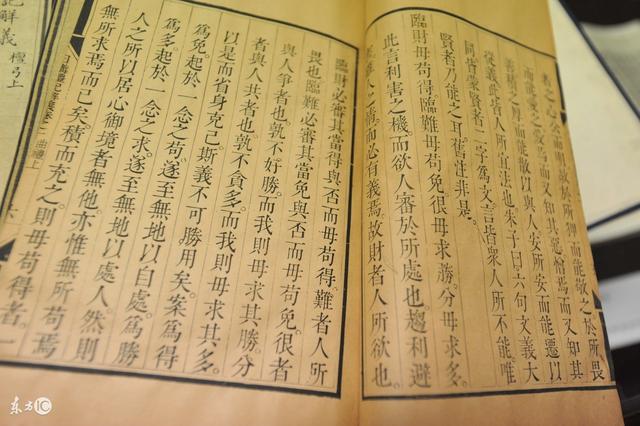 於所狎而能敬之於所畏
焉而又知其惡憎焉而又知其
能散以與人安所安而能遷以
從義此皆人所宜法也朱子曰六句文義大
同皆蒙賢者二字爲文言皆衆人所不能唯
賢者乃能之耳舊注非是。
臨財毋苟得。臨難毋苟免。很毋求勝。分毋求多。
此言利害之機。而欲人審於所處也。趨利避
人情而必有義焉。故財者人所欲也。
臨財必審其當得與否而毋苟得。難者人所
畏也。臨難必審其當免與否而毋苟免。很者
與人爭者也。孰不好勝。而我則毋求其勝。分
者與人共者也。孰不貪多。而我則毋求其多。
以是而省身克己。斯義不可勝用矣。案爲得
爲免起於一念之苟。遂至無地以自處。爲勝
爲多起於一念之求。遂至無地以處人。然則
人之所以居心御境者無他。亦惟無所苟焉
無所求焉而已矣。積而充之。則毋苟得者。一
曲禮上
記解義 檀弓上
东方IC